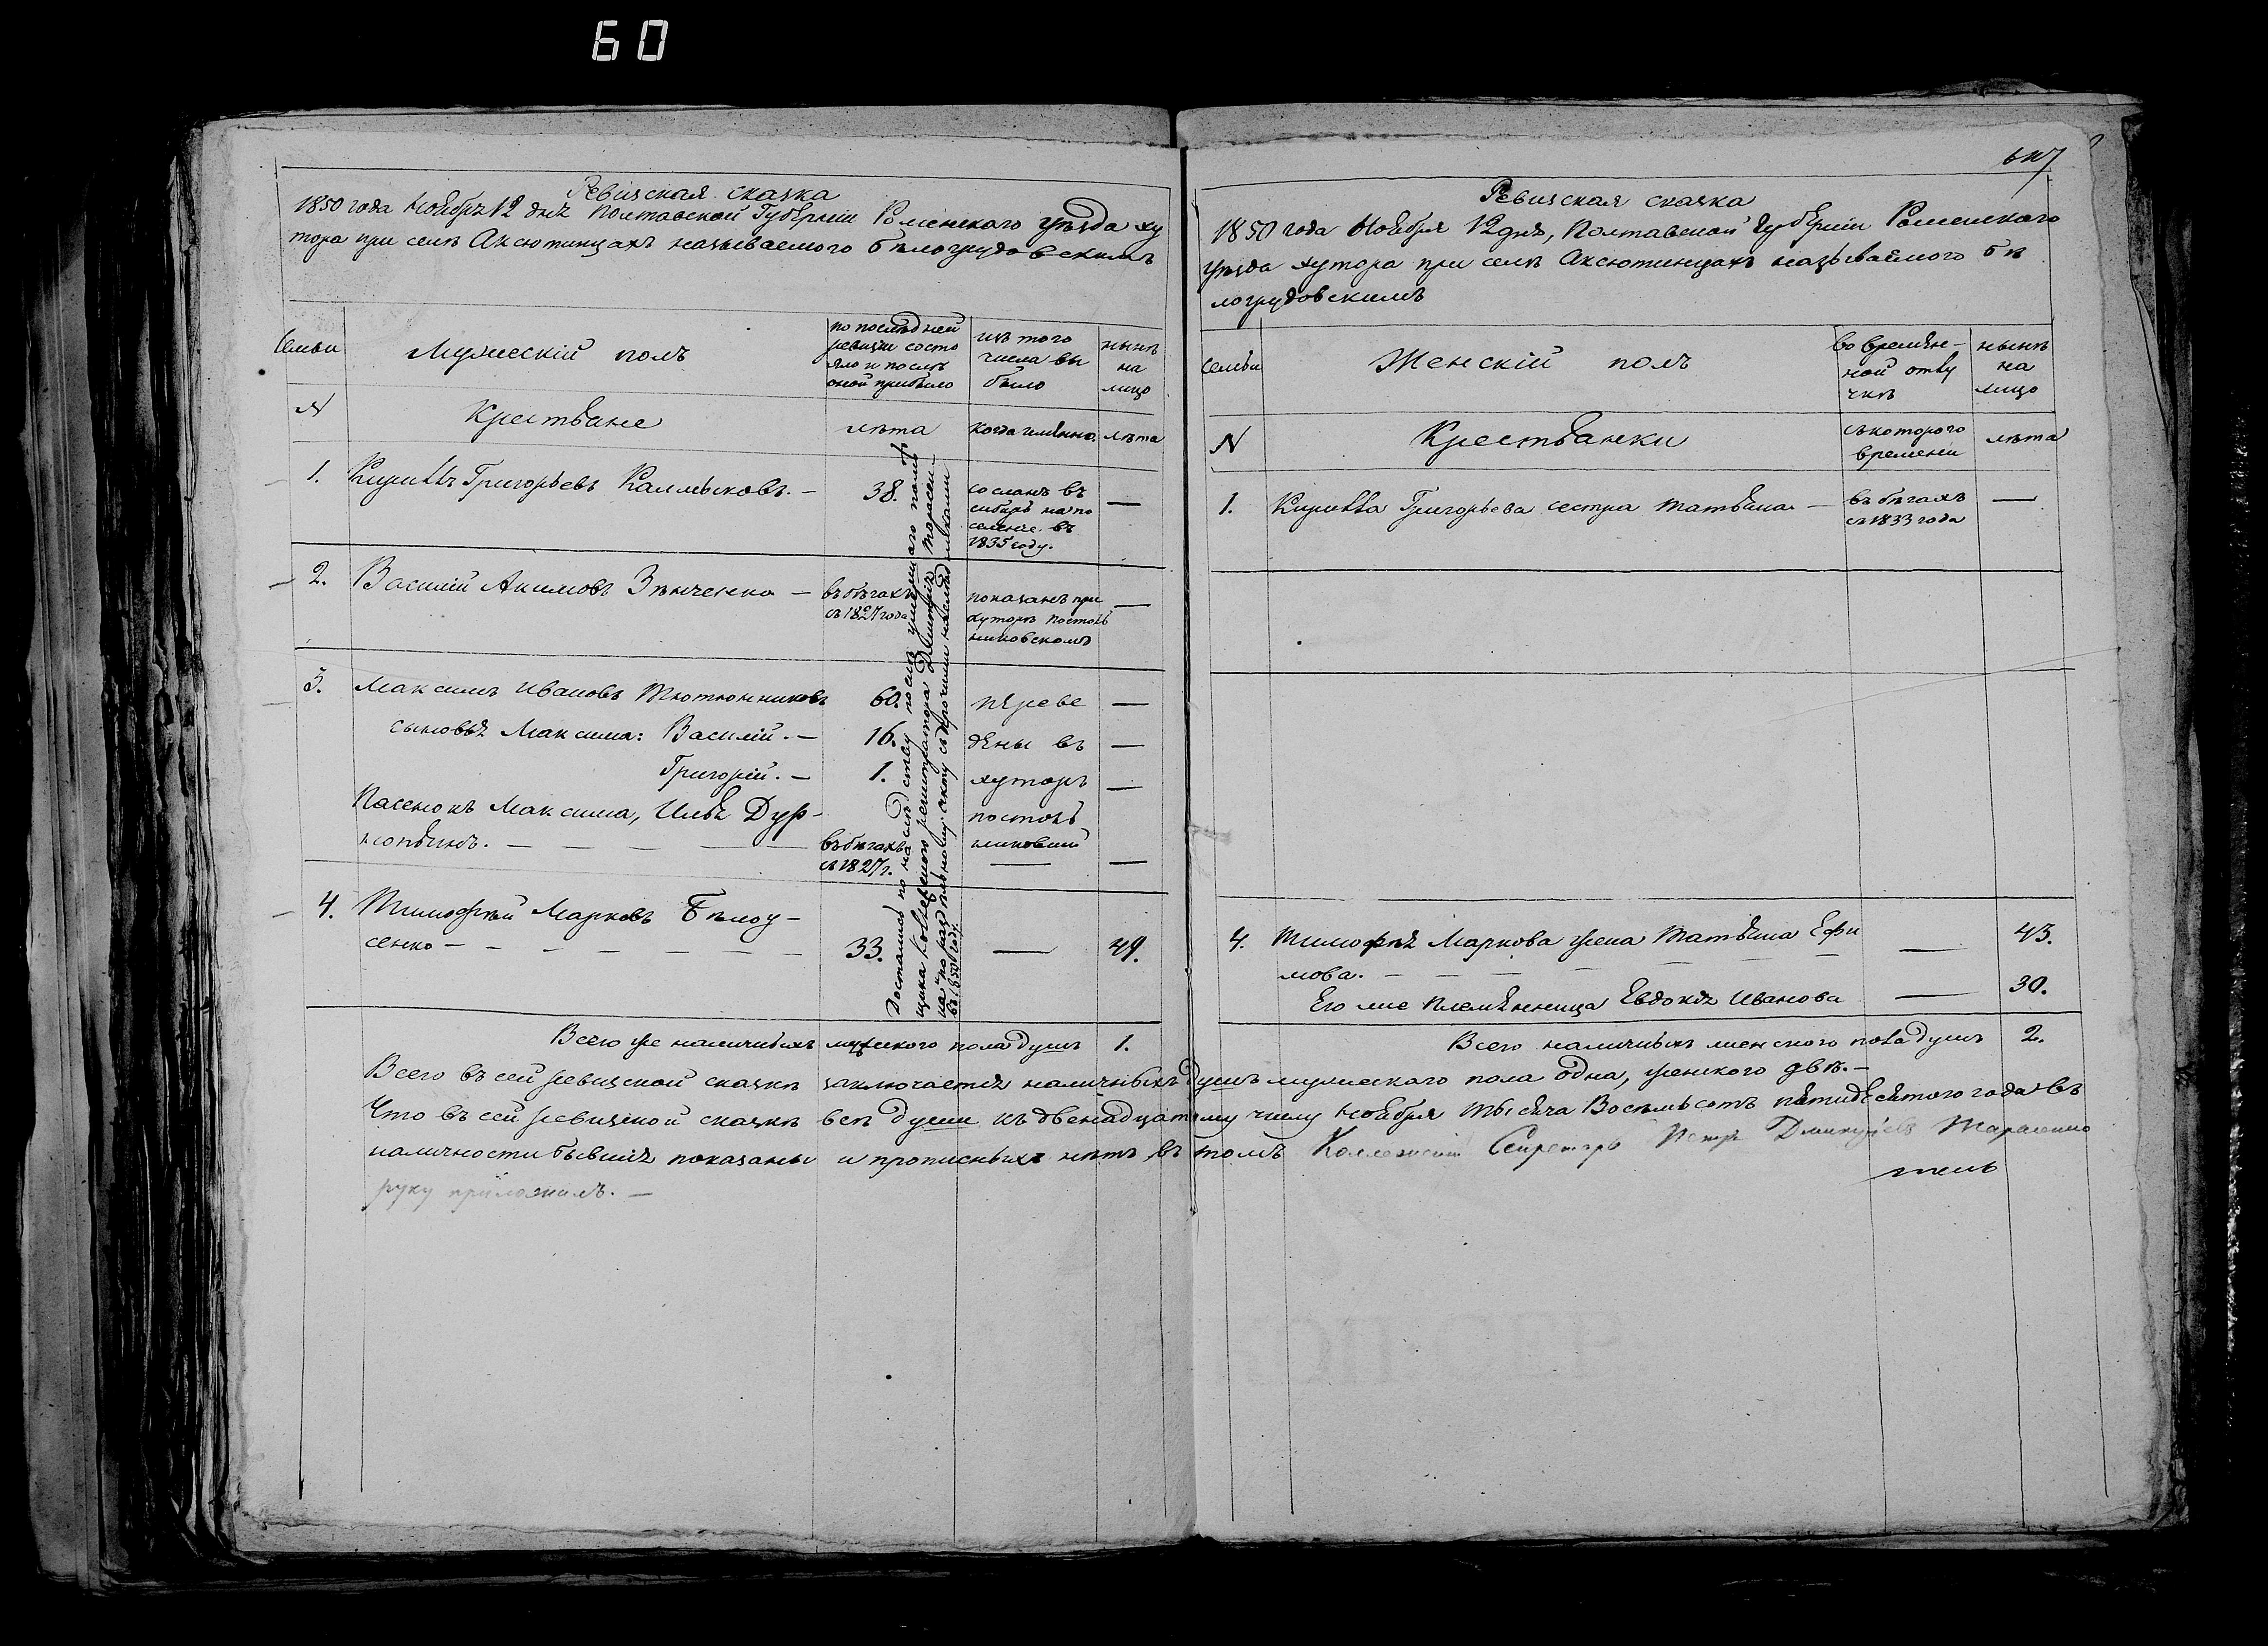 60
Ревизская сказка
1850 года Ноября 12 дня Полтавской Губерніи Роменского уѣзда ху
тора при селѣ Аксютинцахъ называемого Бѣлогрудовскимъ
Семьи
Мужескій полъ
по послѣдней
ревизіи состо
яло и послѣ
оной прибыло
изъ того
числа вы
было
нынѣ
на
лицо
N
Крестьяне
лѣта
когда имянно.
лѣта
1. Кириллъ Григорьевъ Калмыковъ. —
38.
сосланъ въ
сибирь на по
селеніе въ
1835 году.
—
2. Василій Акимовъ Зѣнченко —
въ бѣгахъ
съ 1827 года
показанъ при
хуторѣ Постоль
никовскомъ
—
3. Максимъ Ивановъ Тютюнниковъ
60.
переве
—
сыновья Максима: Василій. —
16.
дены въ
—
Григорій. —
1.
хуторъ
—
Пасенокъ Максима, Илья
въ бѣгахъ
съ 1827 г.
—
—
4. Тимофѣй Марковъ Бѣлоу-
сенко — — — — — —
33.
—
49.
Достались по наслѣдству послѣ умершаго помѣ
щика Коллежского регистратора Дмитрія Тарасен-
ка по раздѣльному акту съ прочими наслѣдниками
въ 1850 году.
Всего же наличныхъ мужеского пола душъ 1.
647
Ревизская сказка
1850 года Ноября 12 дня, Полтавской Губерніи Роменского
уѣзда хутора при селѣ Аксютинцахъ называймого Бѣ
логрудовскимъ
семьи
Женскій полъ
во времян-
ной отлу
чкѣ
нынѣ
на
лицо
N
Крестьянки
съ которого
времени
лѣта
1. Кирилла Григорьева сестра Татьяна —
въ бѣгахъ
съ 1833 года
—
4. Тимофѣя Маркова жена Татьяна Ефи
мова. — — — — — —
—
43.
Его же племянница Евдокія Иванова
—
30.
Всего наличныхъ женского пола душъ 2.
Всего въ сей ревизской сказкѣ заключается наличныхъ душъ мужескаго пола одна, женского двѣ. —
Что въ сей ревизской сказкѣ всѣ души къ двенадцатому числу Ноября тысяча Восемьсотъ пятидесятого года въ
наличности бывшія показаны и прописныхъ нѣтъ, въ томъ Коллежскій Секретарь Петръ Дмитріевъ Тарасенко
руку приложилъ. —